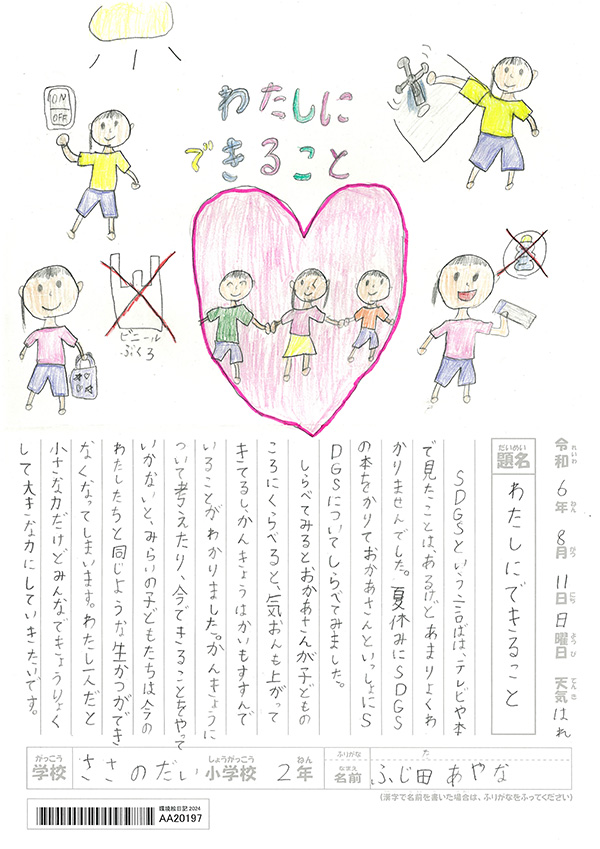 わたしに
できること
ON
OFF
ビニール
ぶくろ
令和 れいわ 6年 ねん 8月 がつ 11日 にち 日曜日 ようび 天気 てんき はれ
題名 だいめい わたしにできること
SDGSという言ばは、テレビや本
で見たことは、あるけどあまりよくわ
かりませんでした。夏休みにSDGS
の本をかりておかあさんといっしょにS
DGSについてしらべてみました。
しらべてみるとおかあさんが子どもの
ころにくらべると、気おんも上がって
きてるし、かんきょうはかいもすすんで
いることがわかりました。かんきょうに
ついて考えたり、今できることをやって
いかないと、みらいの子どもたちは今の
わたしたちと同じような生かつができ
なくなってしまいます。わたし一人だと
小さな力だけどみんなできょうりょく
して大きな力にしていきたいです。
学校 がっこう ささのだい 小学校 しょうがっこう 2年 ねん
ふりがな た
名前 なまえ ふじ田 あやな
(漢字で名前を書いた場合は、ふりがなをふってください)
環境絵日記2024
AA20197